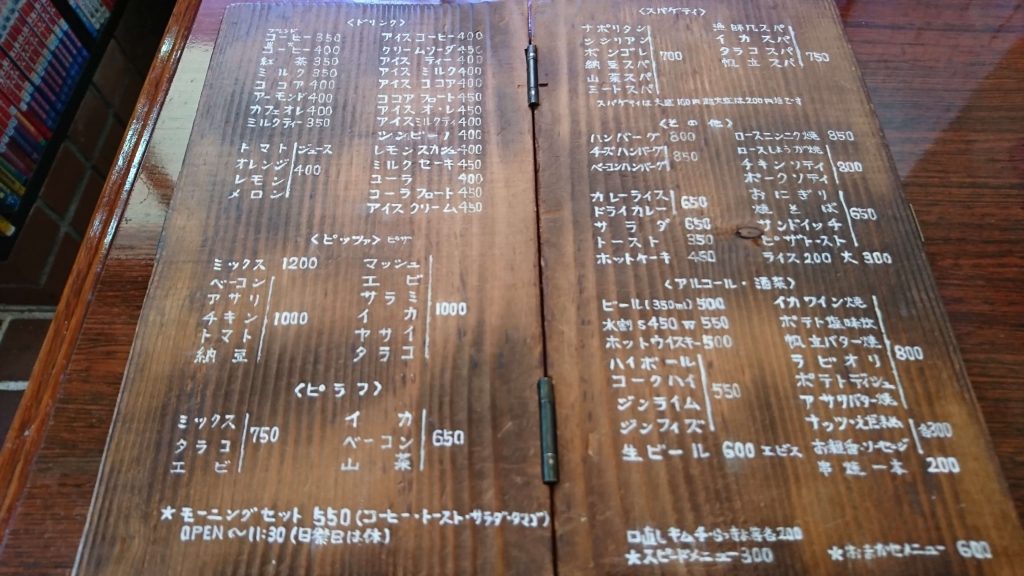 <ドリンク>
コーヒー 350 アイスコーヒー 400
コーヒー 400 クリームソーダ 450
紅茶 350 アイスティー 400
ミルク 350 アイスミルク 400
ココア 400 アイスココア 400
アーモンド 400 ココアフロート 450
カフェオレ 400 アイスオーレ 450
ミルクティー 350 アイスミルクティ 400
400
トマト ジュース レモンスカッシュ 400
オレンジ 400 ミルクセーキ 450
レモン コーラ 400
メロン コーラフロート 450
アイスクリーム 450
<ピッツァ> ピザ
ミックス 1200 マッシュ
ベーコン エビ
アサリ サラミ
チキン 1000 イカ 1000
トマト ヤサイ
納豆 タラコ
<ピラフ>
ミックス イカ
タラコ 750 ベーコン 650
エビ 山菜
★モーニングセット 550 (コーヒー・トースト・サラダ・タマゴ)
OPEN〜11:30 (日祭日は休)
<スパゲティ>
ナポリタン 漁師風スパ
シシリアン イカスパ
ボンゴレ 700 タラコスパ 750
納豆スパ 帆立スパ
山菜スパ
ミートスパ
スパゲティは大盛100円 超大盛は200円増です
<その他>
ハンバーグ 800 ロースニンニク焼 850
チーズハンバーグ 850 ロースしょうが焼
ベーコンハンバーグ チキンソティ 800
ポークソティ
カレーライス 650 おにぎり
ドライカレー 焼そば 650
サラダ 650 サンドイッチ
トースト 350 ピザトースト
ホットケーキ 450 ライス 200 大 300
<アルコール・酒菜>
ビール(350ml) 500 イカワイン焼
水割 S450 W550 ポテト塩味炊
ホットウイスキー 500 帆立バター焼
ハイボール ラビオリ 800
コークハイ 550 ポテトディシュ
ジンライム アサリバター焼
ジンフィズ ナッツ・
生ビール 600 エビス お新香・ソーセージ
串焼一本 200
口直しキムチ・らっきょ 各200
★スピードメニュー 300 ★おまかせメニュー 600